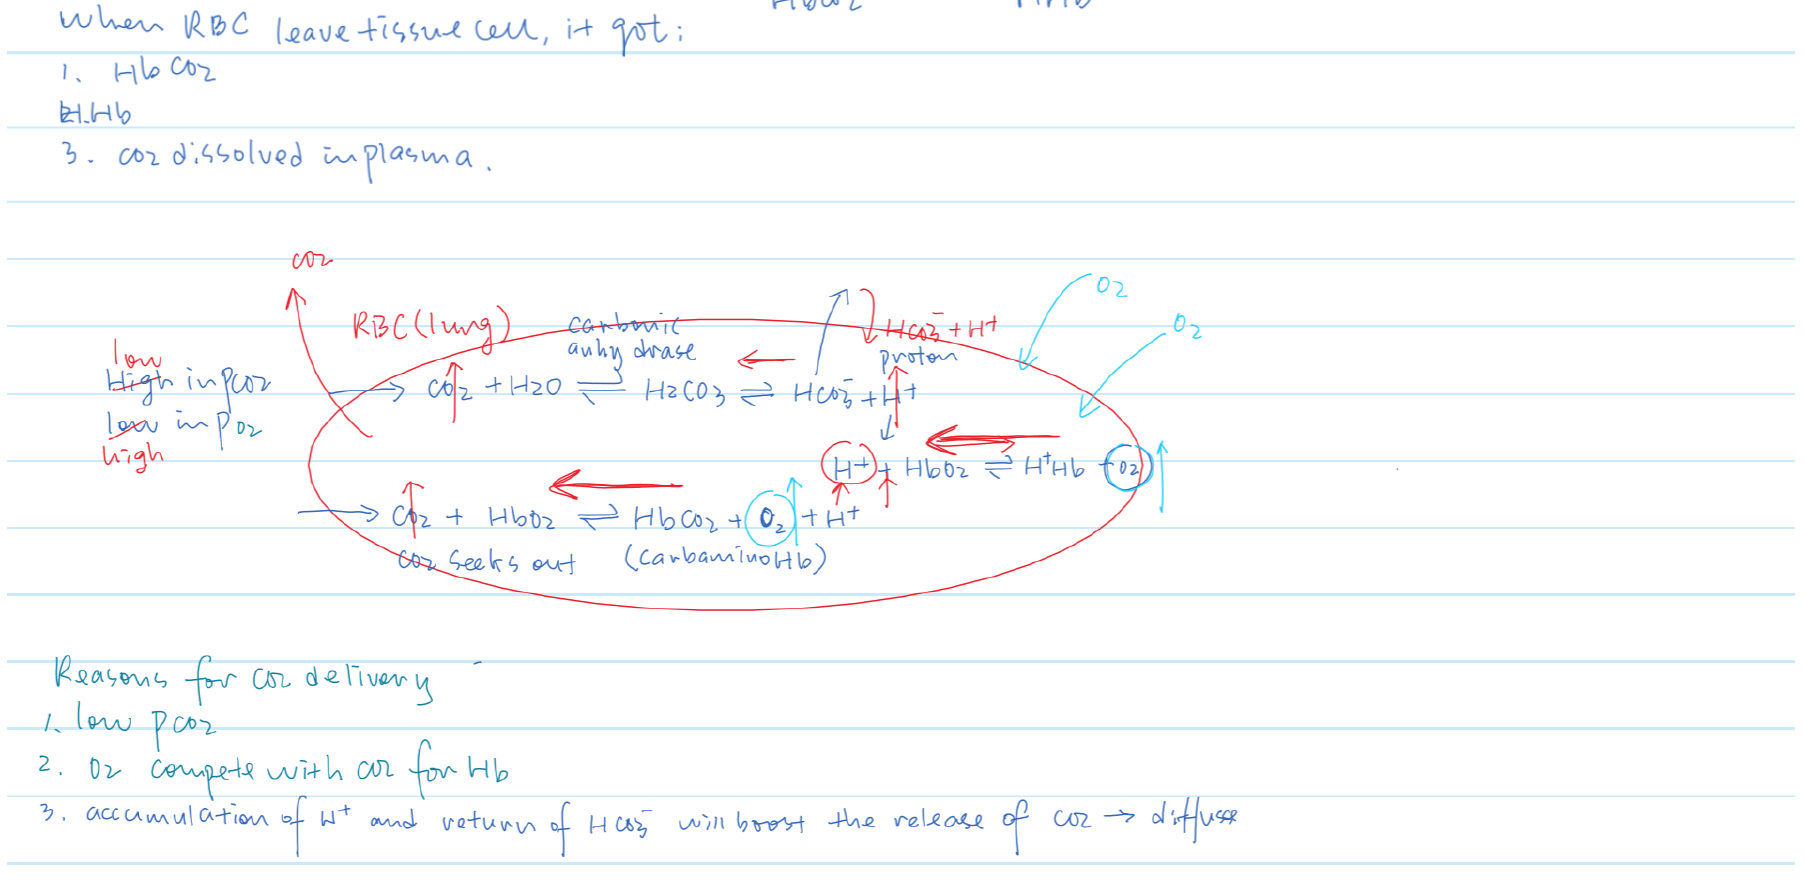 HbCO2 HHb
When RBC leave tissue cell, it got:
1. HbCO2
2. HHb
3. CO2 dissolved in plasma.
CO2
O2
RBC (lung)
carbonic
anhydrase
HCO3⁻ + H⁺
proton
O2
low
High in PCO2
low in PO2
high
CO2 + H2O ⇌ H2CO3 ⇌ HCO3⁻ + H⁺
H⁺ + HbO2 ⇌ H⁺Hb + O2
CO2 + HbO2 ⇌ HbCO2 + O2 + H⁺
CO2 seeks out (carbaminoHb)
Reasons for CO2 delivery
1. low PCO2
2. O2 compete with CO2 for Hb
3. accumulation of H⁺ and return of HCO3⁻ will boost the release of CO2 → diffuse